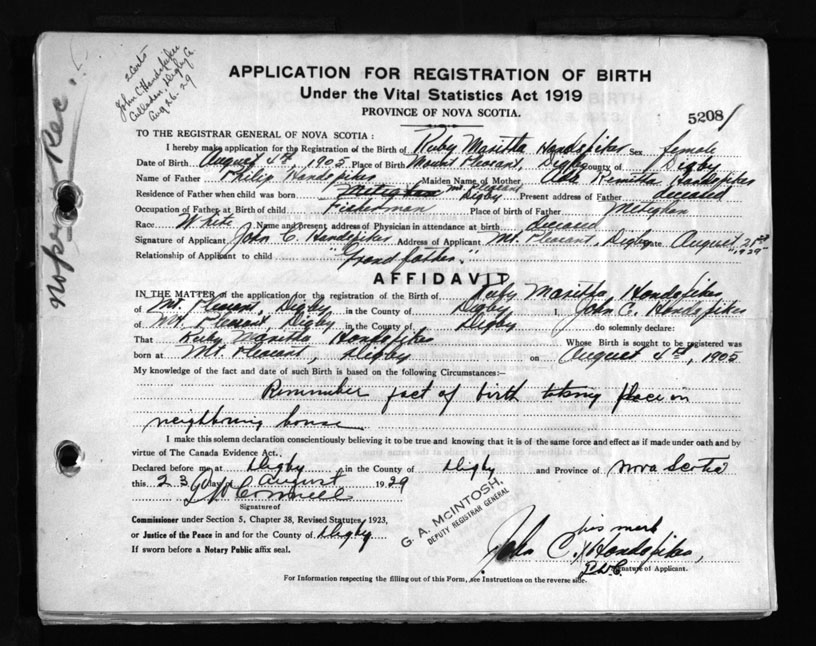 2 Certs
John C Handspiker
Culloden, Digby Co.
Aug 26. 29
No per. Rec.
APPLICATION FOR REGISTRATION OF BIRTH
Under the Vital Statistics Act 1919
PROVINCE OF NOVA SCOTIA.
5208
TO THE REGISTRAR GENERAL OF NOVA SCOTIA :
I hereby make application for the Registration of the Birth of Ruby Maritta Handspiker Sex female
Date of Birth August 4th, 1905 Place of Birth Mount Pleasant, Digby County of Digby
Name of Father Philip Handspiker Maiden Name of Mother Handspiker
Residence of Father when child was born Mt Pleasant Digby Present address of Father deceased
Occupation of Father at Birth of child Fisherman Place of birth of Father Meteghan
Race White Name and present address of Physician in attendance at birth deceased
Signature of Applicant John C. Handspiker Address of Applicant Mt. Pleasant, Digby Date August 21st 1929
Relationship of Applicant to child "Grandfather."
AFFIDAVIT
IN THE MATTER of the application for the registration of the Birth of Ruby Maritta Handspiker
of Mt. Pleasant, Digby in the County of Digby I, John C. Handspiker
of Mt. Pleasant, Digby in the County of Digby do solemnly declare:
That Ruby Maritta Handspiker Whose Birth is sought to be registered was
born at Mt. Pleasant, Digby on August 4th, 1905
My knowledge of the fact and date of such Birth is based on the following Circumstances:—
Remember fact of birth taking place in
neighboring house
I make this solemn declaration conscientiously believing it to be true and knowing that it is of the same force and effect as if made under oath and by
virtue of The Canada Evidence Act.
Declared before me at Digby in the County of Digby and Province of Nova Scotia
this 23 day of August 1929
Signature of
Commissioner under Section 5, Chapter 38, Revised Statutes, 1923,
or Justice of the Peace in and for the County of Digby
If sworn before a Notary Public affix seal.
G. A. McINTOSH,
DEPUTY REGISTRAR GENERAL
his mark
John C. X Handspiker,
Signature of Applicant.
For Information respecting the filling out of this Form, see Instructions on the reverse side.